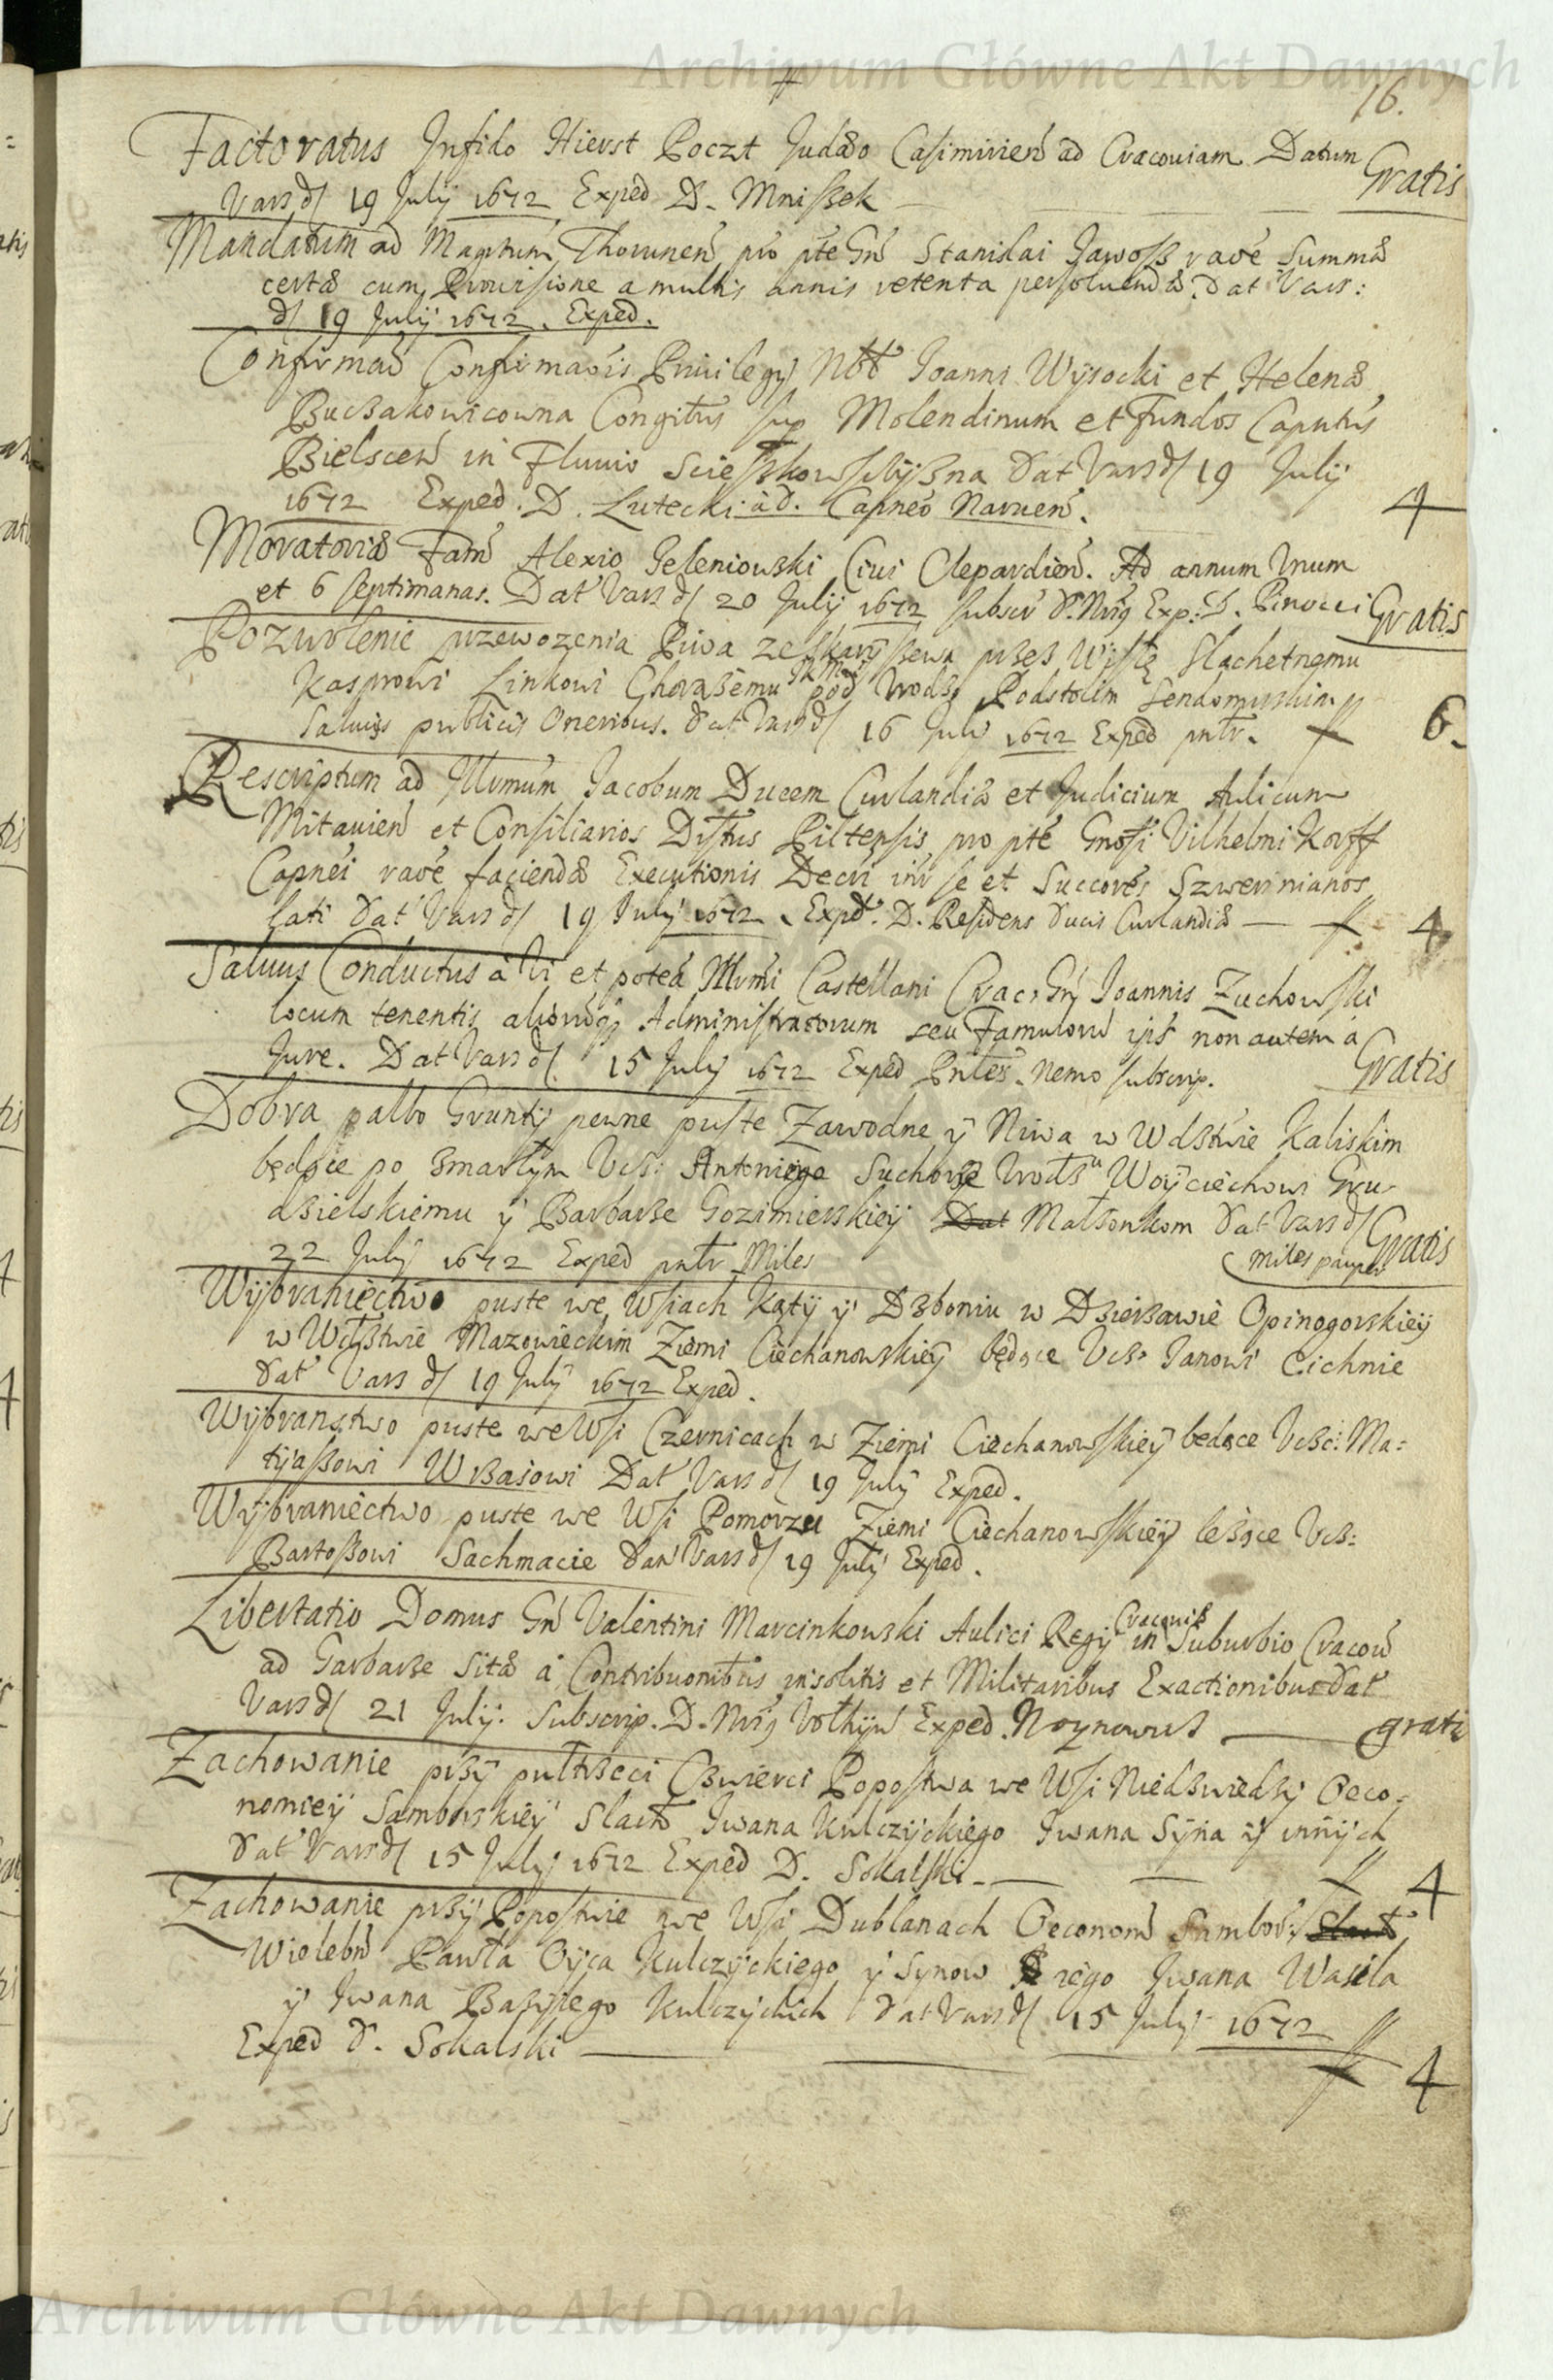 Archiwum Główne Akt Dawnych
16.
Factoratus Infido Hierst Poczt Judæo Casimirień ad Cracoviam Datum
Vars d 19 July 1672 Exped D. Mniszek Gratis
Mandatum ad Magrtum Thorunen pro pte Gn Stanislai Jawosz raõe Summæ
certæ cum Provisione a multis annis retenta persoluendæ. Dat Vars:
d 19 July 1672. Exped.
Confirmaõ Confirmaõis Privilegy Nbł Joanni Wysocki et Helenæ
Buczakowicowna Congibus sup Molendinum et Fundos Capntus
Bielsceń in Fluvio Dat Vars d 19 July
1672 Exped. D. Lutecki ad. Capneo Narueń. 4
Moratoriæ Fam Alexio Jeleniowski Civi Clepardień. Ad annum Vnum
et 6 septimanas. Dat Vars d 20 July 1672 subscr D. Nrig Exp: D. Pinocci Gratis
Pozwolenie przewozenia Piwa ze Skaryszewa przez Wisłę Slachetnemu
Kasprowi Linkowi Chorążemu pod Urodz Podstolim Sendomirskim
Saluis publicis Oneribus. Dat Vars d 16 July 1672 Exped pntr. 6.
Rescriptum ad Illrmum Jacobum Ducem Curlandiæ et Judicium Aulicum
Mitauień et Consiliarios Distrus Piltensis pro pte Gnosi Vilhelmi Korff
Capnei raõe faciendæ Executionis Decri inr se et Succores Szwerinianos
lati Dat Vars d 19 July 1672. Exped. D. Residens Ducis Curlandiæ 4
Saluus Conductus à Vi et poteã Illrmi Castellani Crac: Gn Joannis Zuchowski
locum tenentis aliorũq Administratorum seu Famulorũ ips non autem à
Jure. Dat Vars d 15 July 1672 Exped Pntes. Nemo subscrip. Gratis
Dobra albo Grunty pewne puste Zawodne y Niwa w Wdztwie Kaliskim
będące po zmarłym Ucz: Antoniego Suchorze Urodz Woyciechowi Gru-
dzielskiemu y Barbarze Gozimierskiey Dat Małzonkom Dat Vars d
22 July 1672 Exped pntr Miles miles pauper Gratis
Wybraniectwo puste we Wsiach Kąty y Dzboniu w Dzierzawie Opinogorskiey
w Wdztwie Mazowieckim Ziemi Ciechanowskiey będące Ucz: Janowi Cichnie
Dat Vars d 19 July 1672 Exped.
Wybranstwo puste we Wsi Czernicach w Ziemi Ciechanowskiey bedące Uczc: Ma:
tyaszowi Wrzasowi Dat Vars d 19 July Exped.
Wybraniectwo puste we Wsi Pomorzu Ziemi Ciechanowskiey leżące Ucz:
Bartoszowi Sachmacie Dat Vars d 19 July Exped.
Libertatio Domus Gn Valentini Marcinkowski Aulici Regy Cracoviæ in Suburbio Cracov
ad Garbarze Sitæ à Contribuonibus insolitis et Militaribus Exactionibus Dat
Vars d 21 July. Subscrip. D. Nrig Vołhyn Exped. Noznowus gratis
Zachowanie przy pułtrzeci Czwierci Popostwa we Wsi Niedzwiedzy Oeco:
nomiey Samborskiey Slach Iwana Kulczyckiego Iwana Syna y innych
Dat Vars d 15 July 1672 Exped D. Sokalski 4
Zachowanie przy Popostwie we Wsi Dublanach Oeconom Sambor: Slach
Wielebn Pawła Oyca Kulczyckiego y Synow Iwana Wasila
y Iwana Bazylego Kulczyckich Dat Vars d 15 July 1672
Exped D. Sokalski 4
Archiwum Główne Akt Dawnych